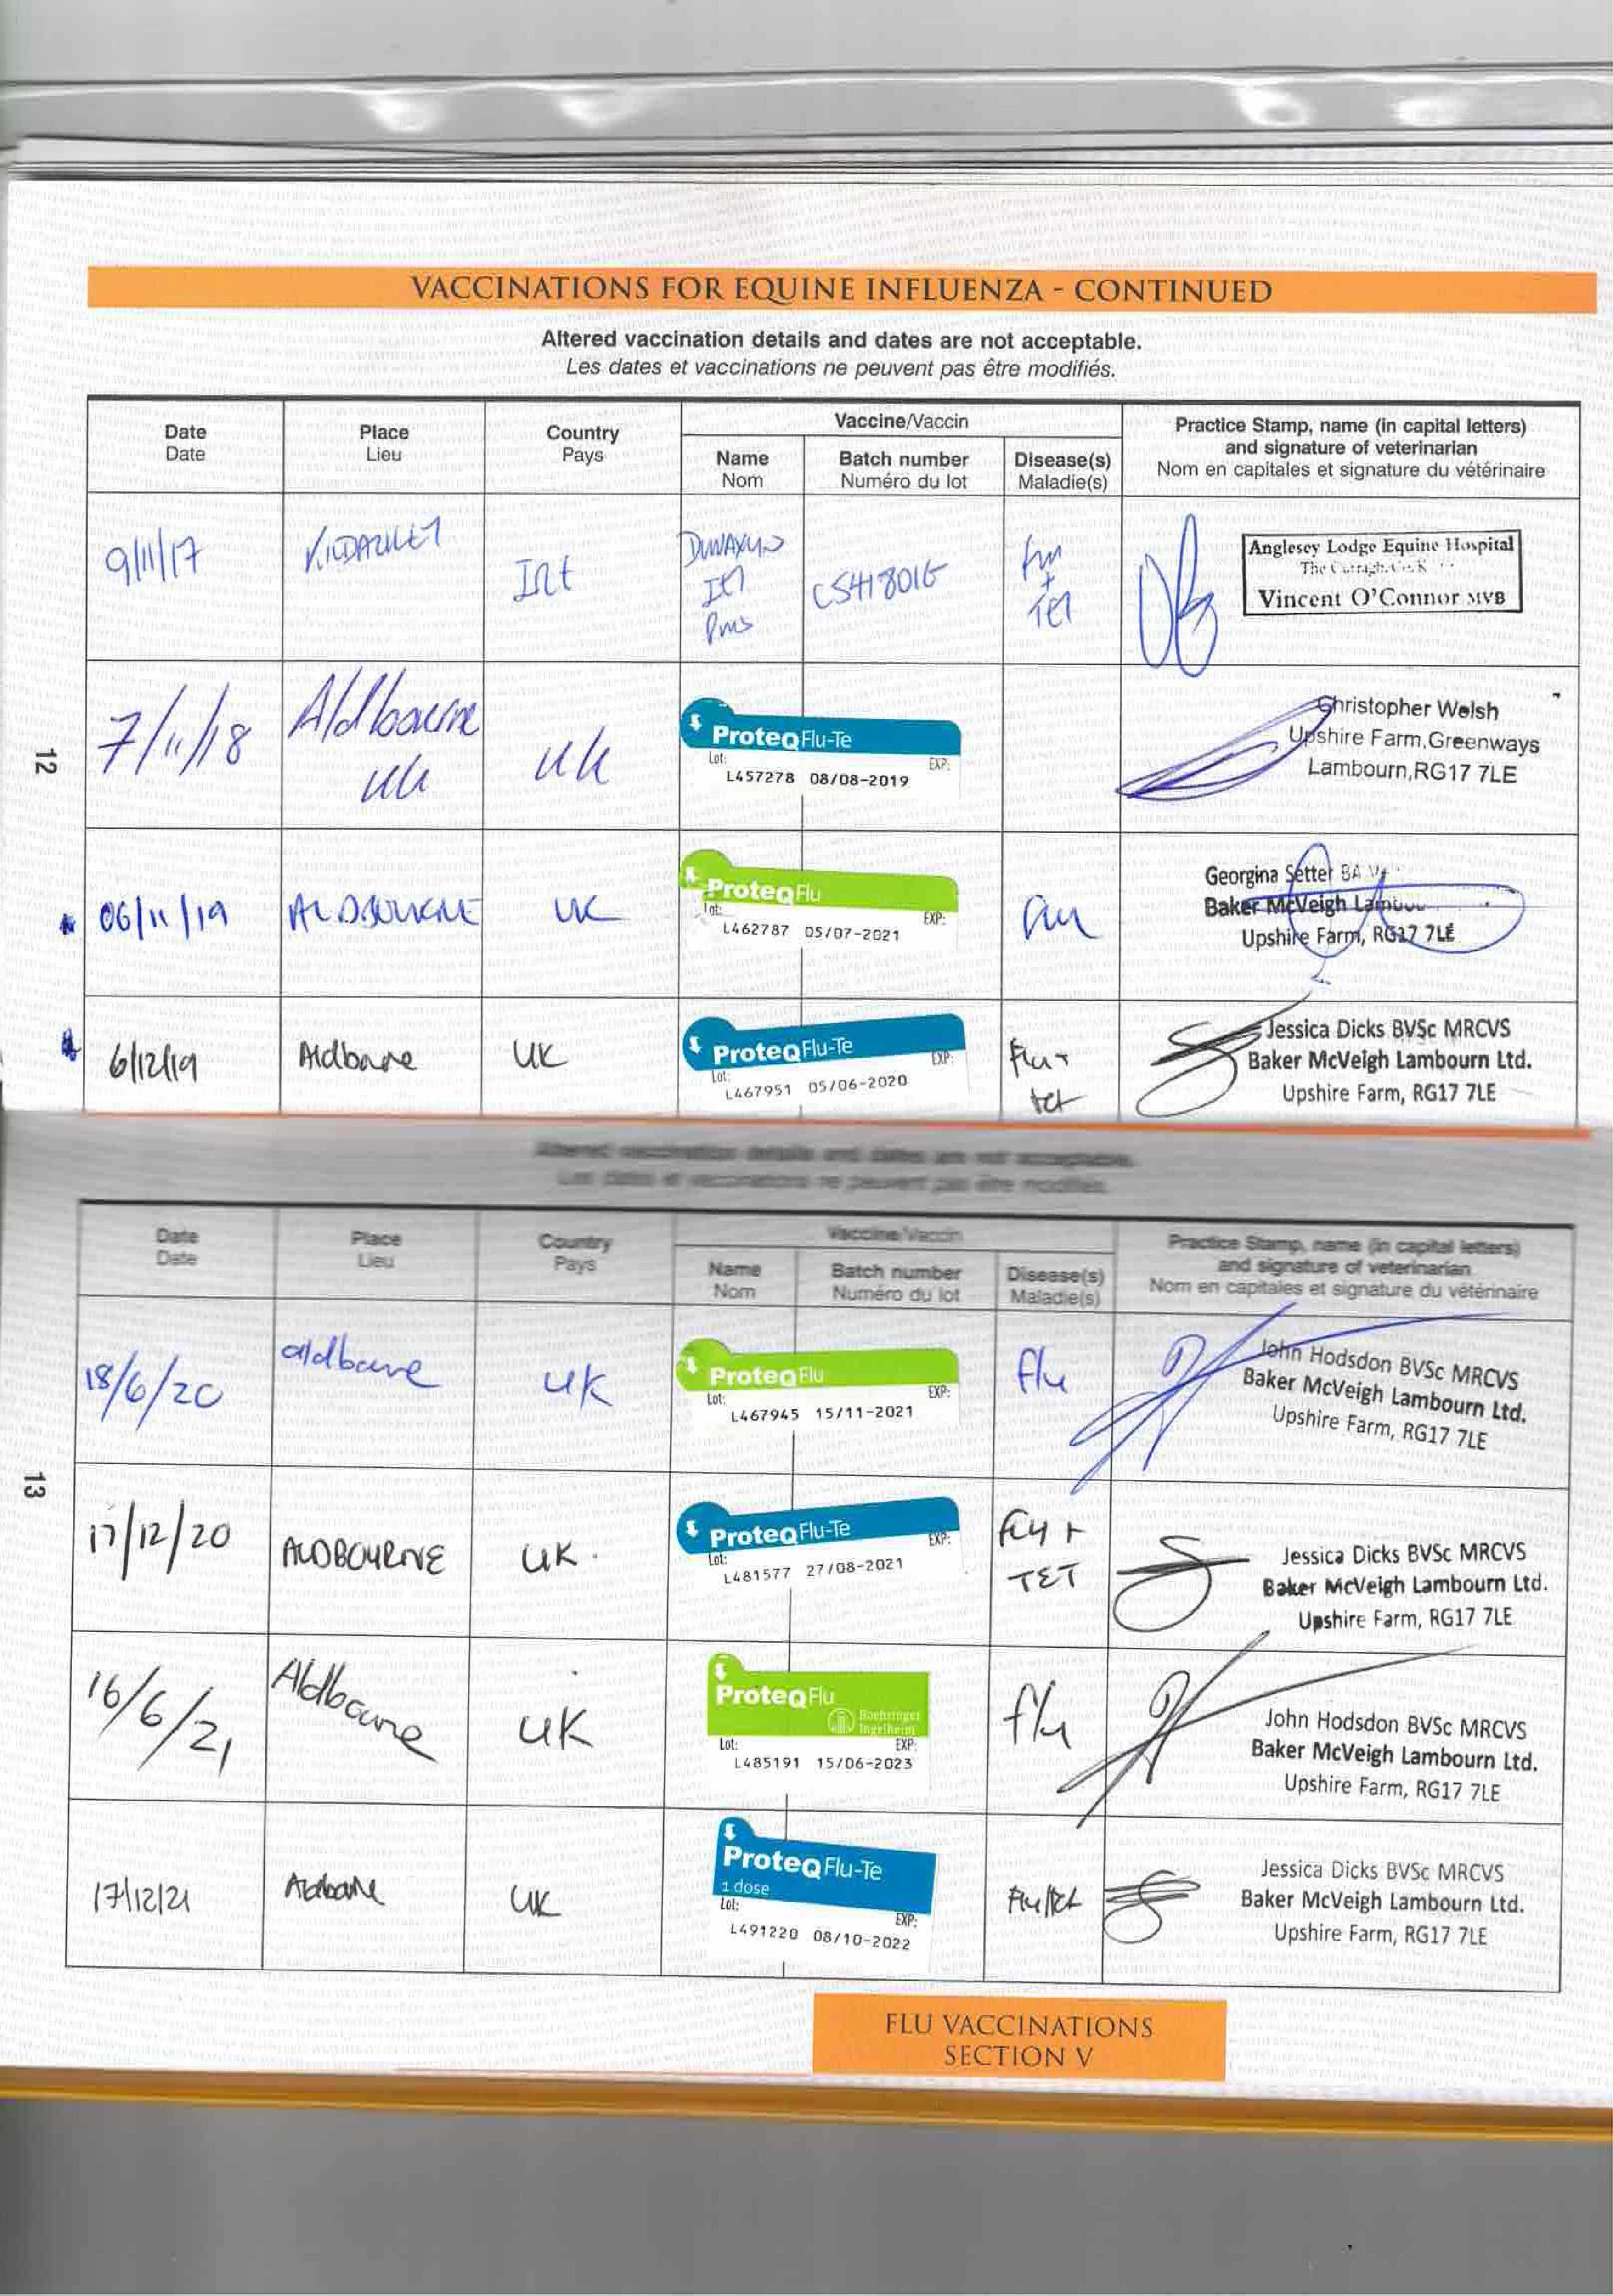 VACCINATIONS FOR EQUINE INFLUENZA - CONTINUED
Altered vaccination details and dates are not acceptable.
Les dates et vaccinations ne peuvent pas être modifiés.
Date
Date
Place
Lieu
Country
Pays
Vaccine/Vaccin
Name
Nom
Batch number
Numéro du lot
Disease(s)
Maladie(s)
Practice Stamp, name (in capital letters)
and signature of veterinarian
Nom en capitales et signature du vétérinaire
9/11/17
Anglesey Lodge Equine Hospital
Vincent O'Connor MVB
7/11/18
Aldbourne
Uk
Uk
ProteqFlu-Te
Lot: EXP:
L457278 08/08-2019
Christopher Welsh
Upshire Farm,Greenways
Lambourn,RG17 7LE
12
06/11/19
ALDBOURNE
UK
ProteqFlu
Lot: EXP:
L462787 05/07-2021
Georgina Setter BA
Baker McVeigh
Upshire Farm, RG17 7LE
6/12/19
UK
ProteqFlu-Te
Lot: EXP:
L467951 05/06-2020
Flu +
tet
Jessica Dicks BVSc MRCVS
Baker McVeigh Lambourn Ltd.
Upshire Farm, RG17 7LE
Altered vaccination details and dates are not acceptable.
Les dates et vaccinations ne peuvent pas être modifiés.
Date
Date
Place
Lieu
Country
Pays
Vaccine/Vaccin
Name
Nom
Batch number
Numéro du lot
Disease(s)
Maladie(s)
Practice Stamp, name (in capital letters)
and signature of veterinarian
Nom en capitales et signature du vétérinaire
18/6/20
UK
ProteqFlu
Lot: EXP:
L467945 15/11-2021
flu
John Hodsdon BVSc MRCVS
Baker McVeigh Lambourn Ltd.
Upshire Farm, RG17 7LE
13
17/12/20
ALDBOURNE
UK.
ProteqFlu-Te
Lot: EXP:
L481577 27/08-2021
FLU +
TET
Jessica Dicks BVSc MRCVS
Baker McVeigh Lambourn Ltd.
Upshire Farm, RG17 7LE
16/6/21
Aldbourne
UK
ProteqFlu
Boehringer
Ingelheim
Lot: EXP:
L485191 15/06-2023
flu
John Hodsdon BVSc MRCVS
Baker McVeigh Lambourn Ltd.
Upshire Farm, RG17 7LE
17/12/21
UK
ProteqFlu-Te
1 dose
Lot: EXP:
L491220 08/10-2022
Flu/tet
Jessica Dicks BVSc MRCVS
Baker McVeigh Lambourn Ltd.
Upshire Farm, RG17 7LE
FLU VACCINATIONS
SECTION V